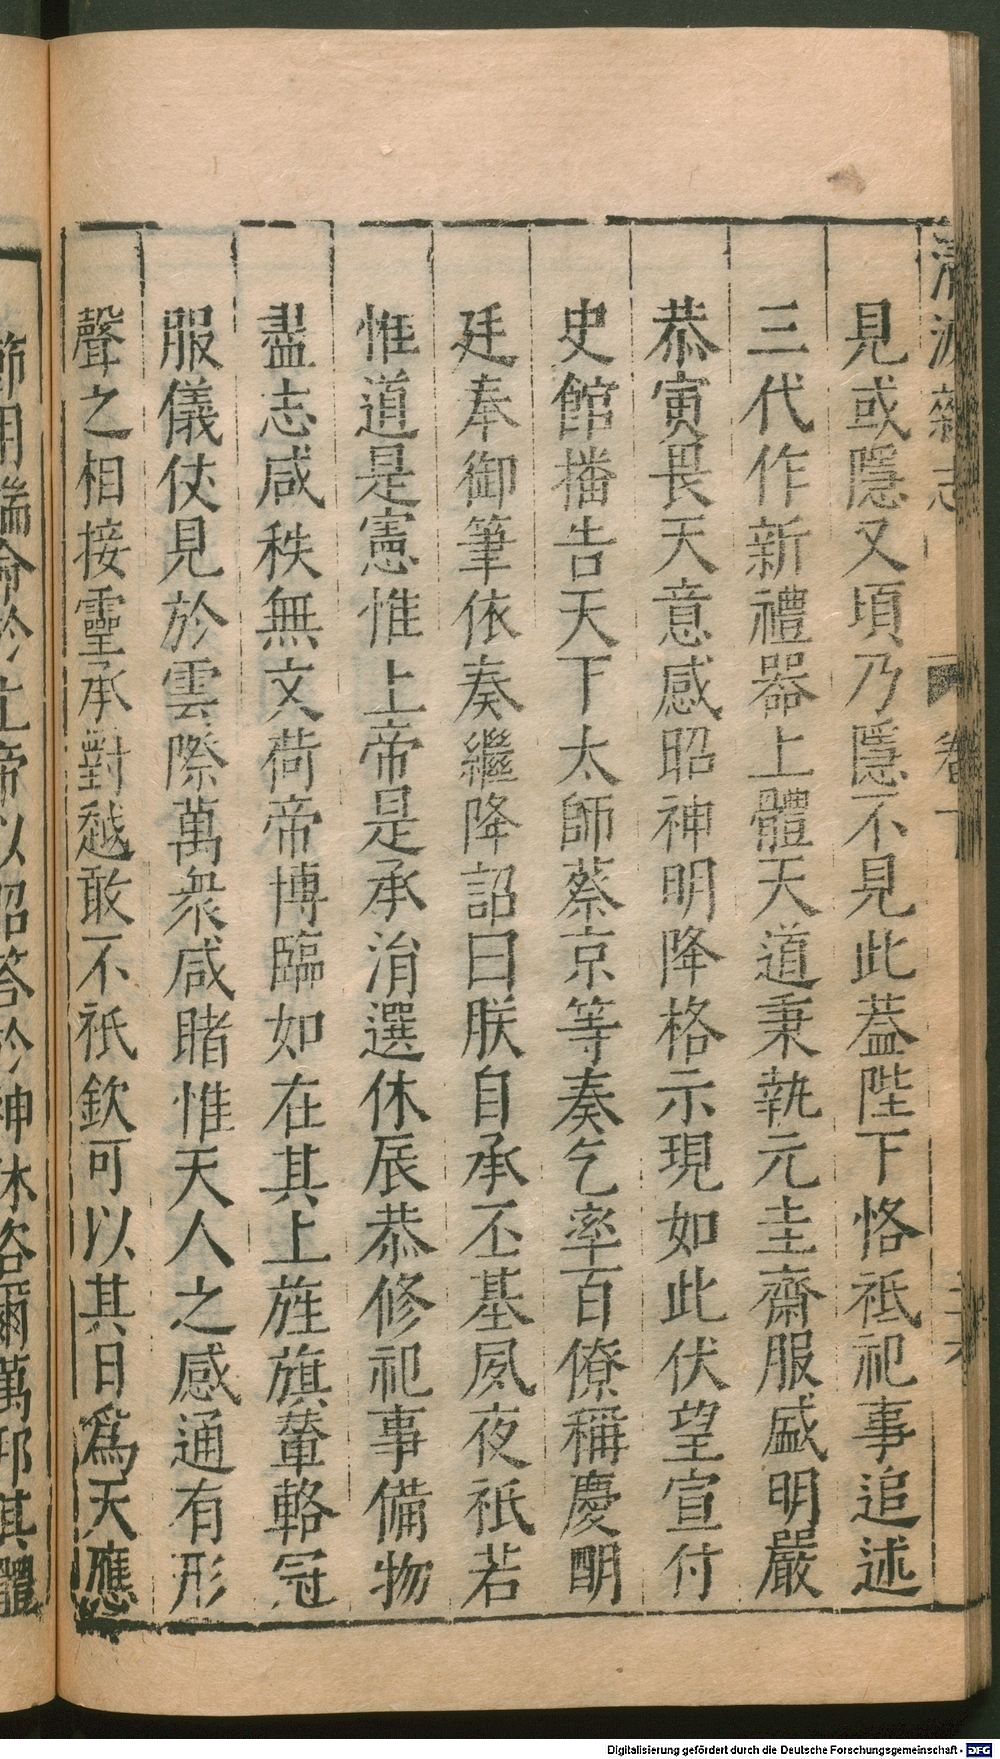 清波雜志 卷十
見或隱又頃乃隱不見此葢陛下恪祗祀事追述
三代作新禮器上體天道秉執元圭齋服盛明嚴
恭寅畏天意感昭神明降格示現如此伏望宣付
史館播告天下太師蔡京等奏乞率百僚稱慶明
廷奉御筆依奏繼降詔曰朕自承丕基夙夜祇若
惟道是憲惟上帝是承涓選休辰恭修祀事備物
盡志咸秩無文荷帝博臨如在其上旌旗輦輅冠
服儀仗見於雲際萬衆咸睹惟天人之感通有形
聲之相接靈承對越敢不祇欽可以其日爲天應
節用端命於上帝以昭答於神休咨爾萬邦其體
Digitalisierung gefördert durch die Deutsche Forschungsgemeinschaft - DFG